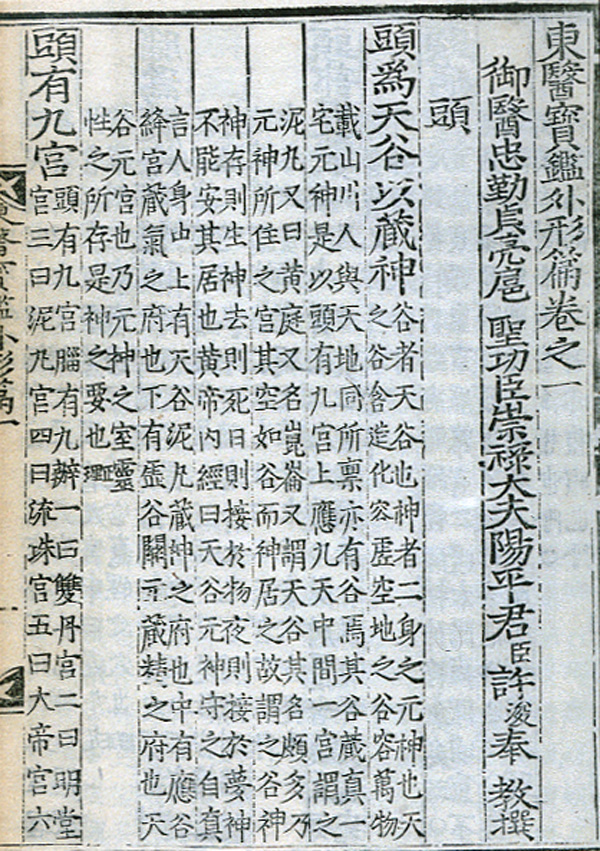 東醫寶鑑外形篇卷之一
御醫忠勤貞亮扈 聖功臣崇祿大夫陽平君臣許浚奉 教撰
頭
頭爲天谷以藏神
谷者天谷也神者一身之元神也天
之谷含造化容虛空地之谷容萬物
載山川人與天地同所稟亦有谷焉其谷藏真一
宅元神是以頭有九宮上應九天中間一宮謂之
泥丸又曰黃庭又名崑崙又謂天谷其名頗多乃
元神所住之宮其空如谷而神居之故謂之谷神
神存則生神去則死日則接於物夜則接於夢神
不能安其居也黃帝內經曰天谷元神守之自真
言人身中上有天谷泥丸藏神之府也中有應谷
絳宮藏氣之府也下有虛谷關元藏精之府也天
谷元宮也乃元神之室靈
性之所存是神之要也正理
頭有九宮
頭有九宮腦有九瓣一曰雙丹宮二曰明堂
宮三曰泥丸宮四曰流珠宮五曰大帝宮六
醫寶鑑外形篇一